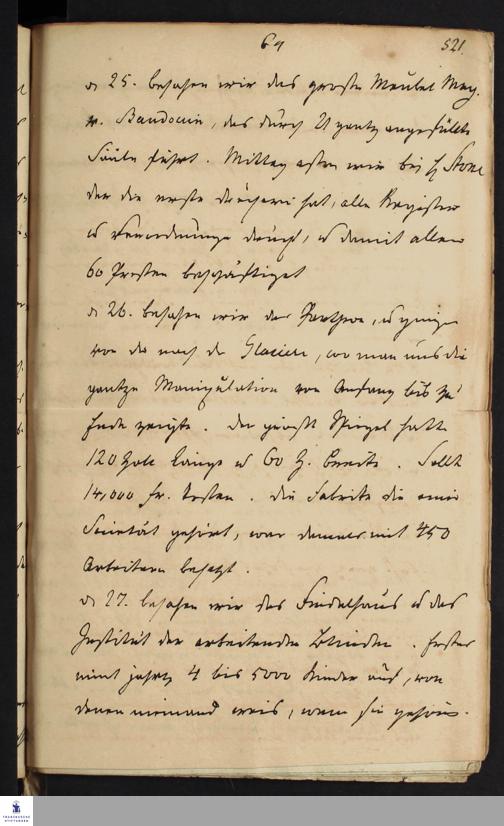 69 521.
d. 25. besahen wir das große Meubel Mag.
v. Baudouin, das durch 21 gantz angefüllte
Säale führt. Mittag aßen wir bei H. Stone
der die erste Drückerei hat, alle Register
u Verordnungen druckt, u damit allein
60 Pressen beschäftiget
d. 26. besahen wir das Pantheon, u gingen
von da nach der Glacierie, wo man uns die
gantze Manipulation von Anfang bis zu
Ende zeigte. Der größte Spiegel hatte
120 Zoll Länge u 60 Z. Breite. Sollte
14,000 fr. kosten. Die Fabrike die einer
Societät gehört, war damals mit 450
Arbeitern besetzt.
d. 27. besahen wir das Findelhaus u das
Institut der arbeitenden Blinden. Erstes
nimt jährl. 4 bis 5000 Kinder auf, von
denen niemand weis, wem sie gehören.
FRANCKESCHE
STIFTUNGEN